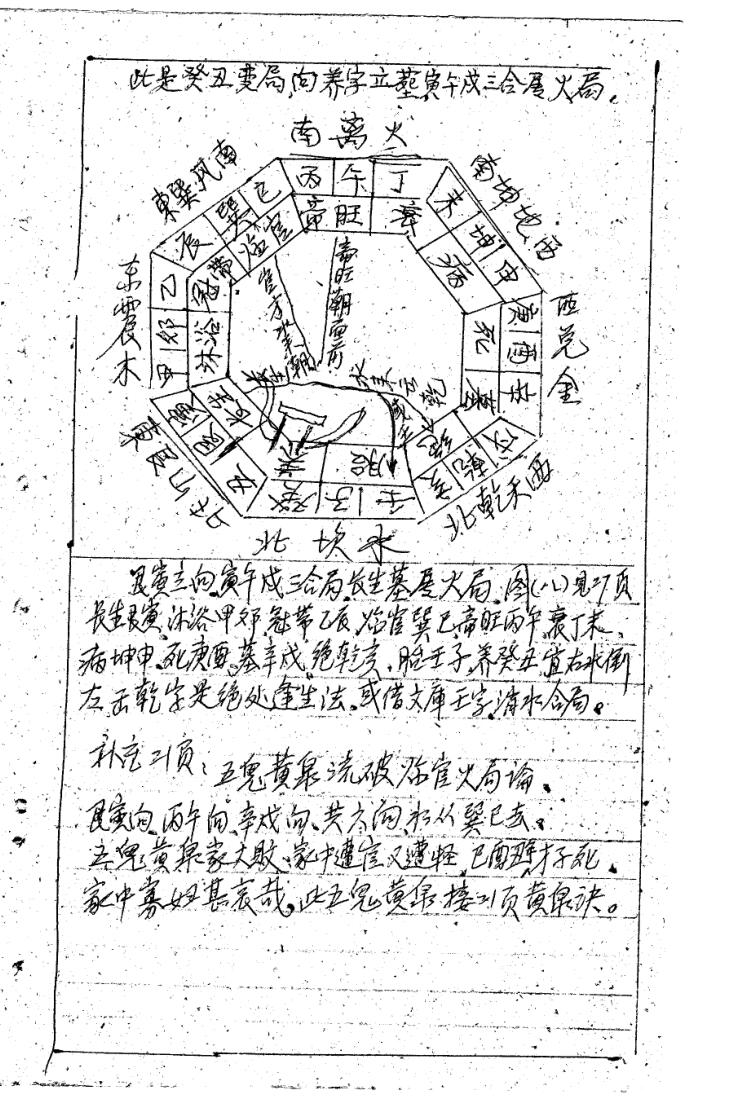 此是癸丑变局,向养字立塟寅午戌三合属火局。
南离火
東巽风南
南坤地西
丙 午 丁
帝 旺 衰
巳
巽
辰
临官
冠带
未 坤 申
病
东震木
乙
卯
甲
沐浴
西兑金
庚
酉
辛
死
墓
帝旺朝面前
官方水朝
寅
艮
丑
長生
養
胎
癸 子 壬
戌
乾
亥
绝
東艮山北
北乾天西
北坎水
艮寅立向,寅午戌三合局,长生墓属火局,图(八)见27页
长生艮寅,沐浴甲卯,冠带乙辰,临官巽巳,帝旺丙午,衰丁未,
病坤申,死庚酉,墓辛戌,绝乾亥,胎壬子,养癸丑宜右水倒
左,击乾字是绝处逢生法,或借文庫壬字消水合局。
补充21页:五鬼黄泉流破临官火局論。
艮寅向,丙午向,辛戌向,共六向,水从巽巳去。
五鬼黄泉家大敗,家中遭官又遭怪,巳酉丑年才子死,
家中寡妇甚哀哉,此五鬼黄泉接21页黄泉诀。